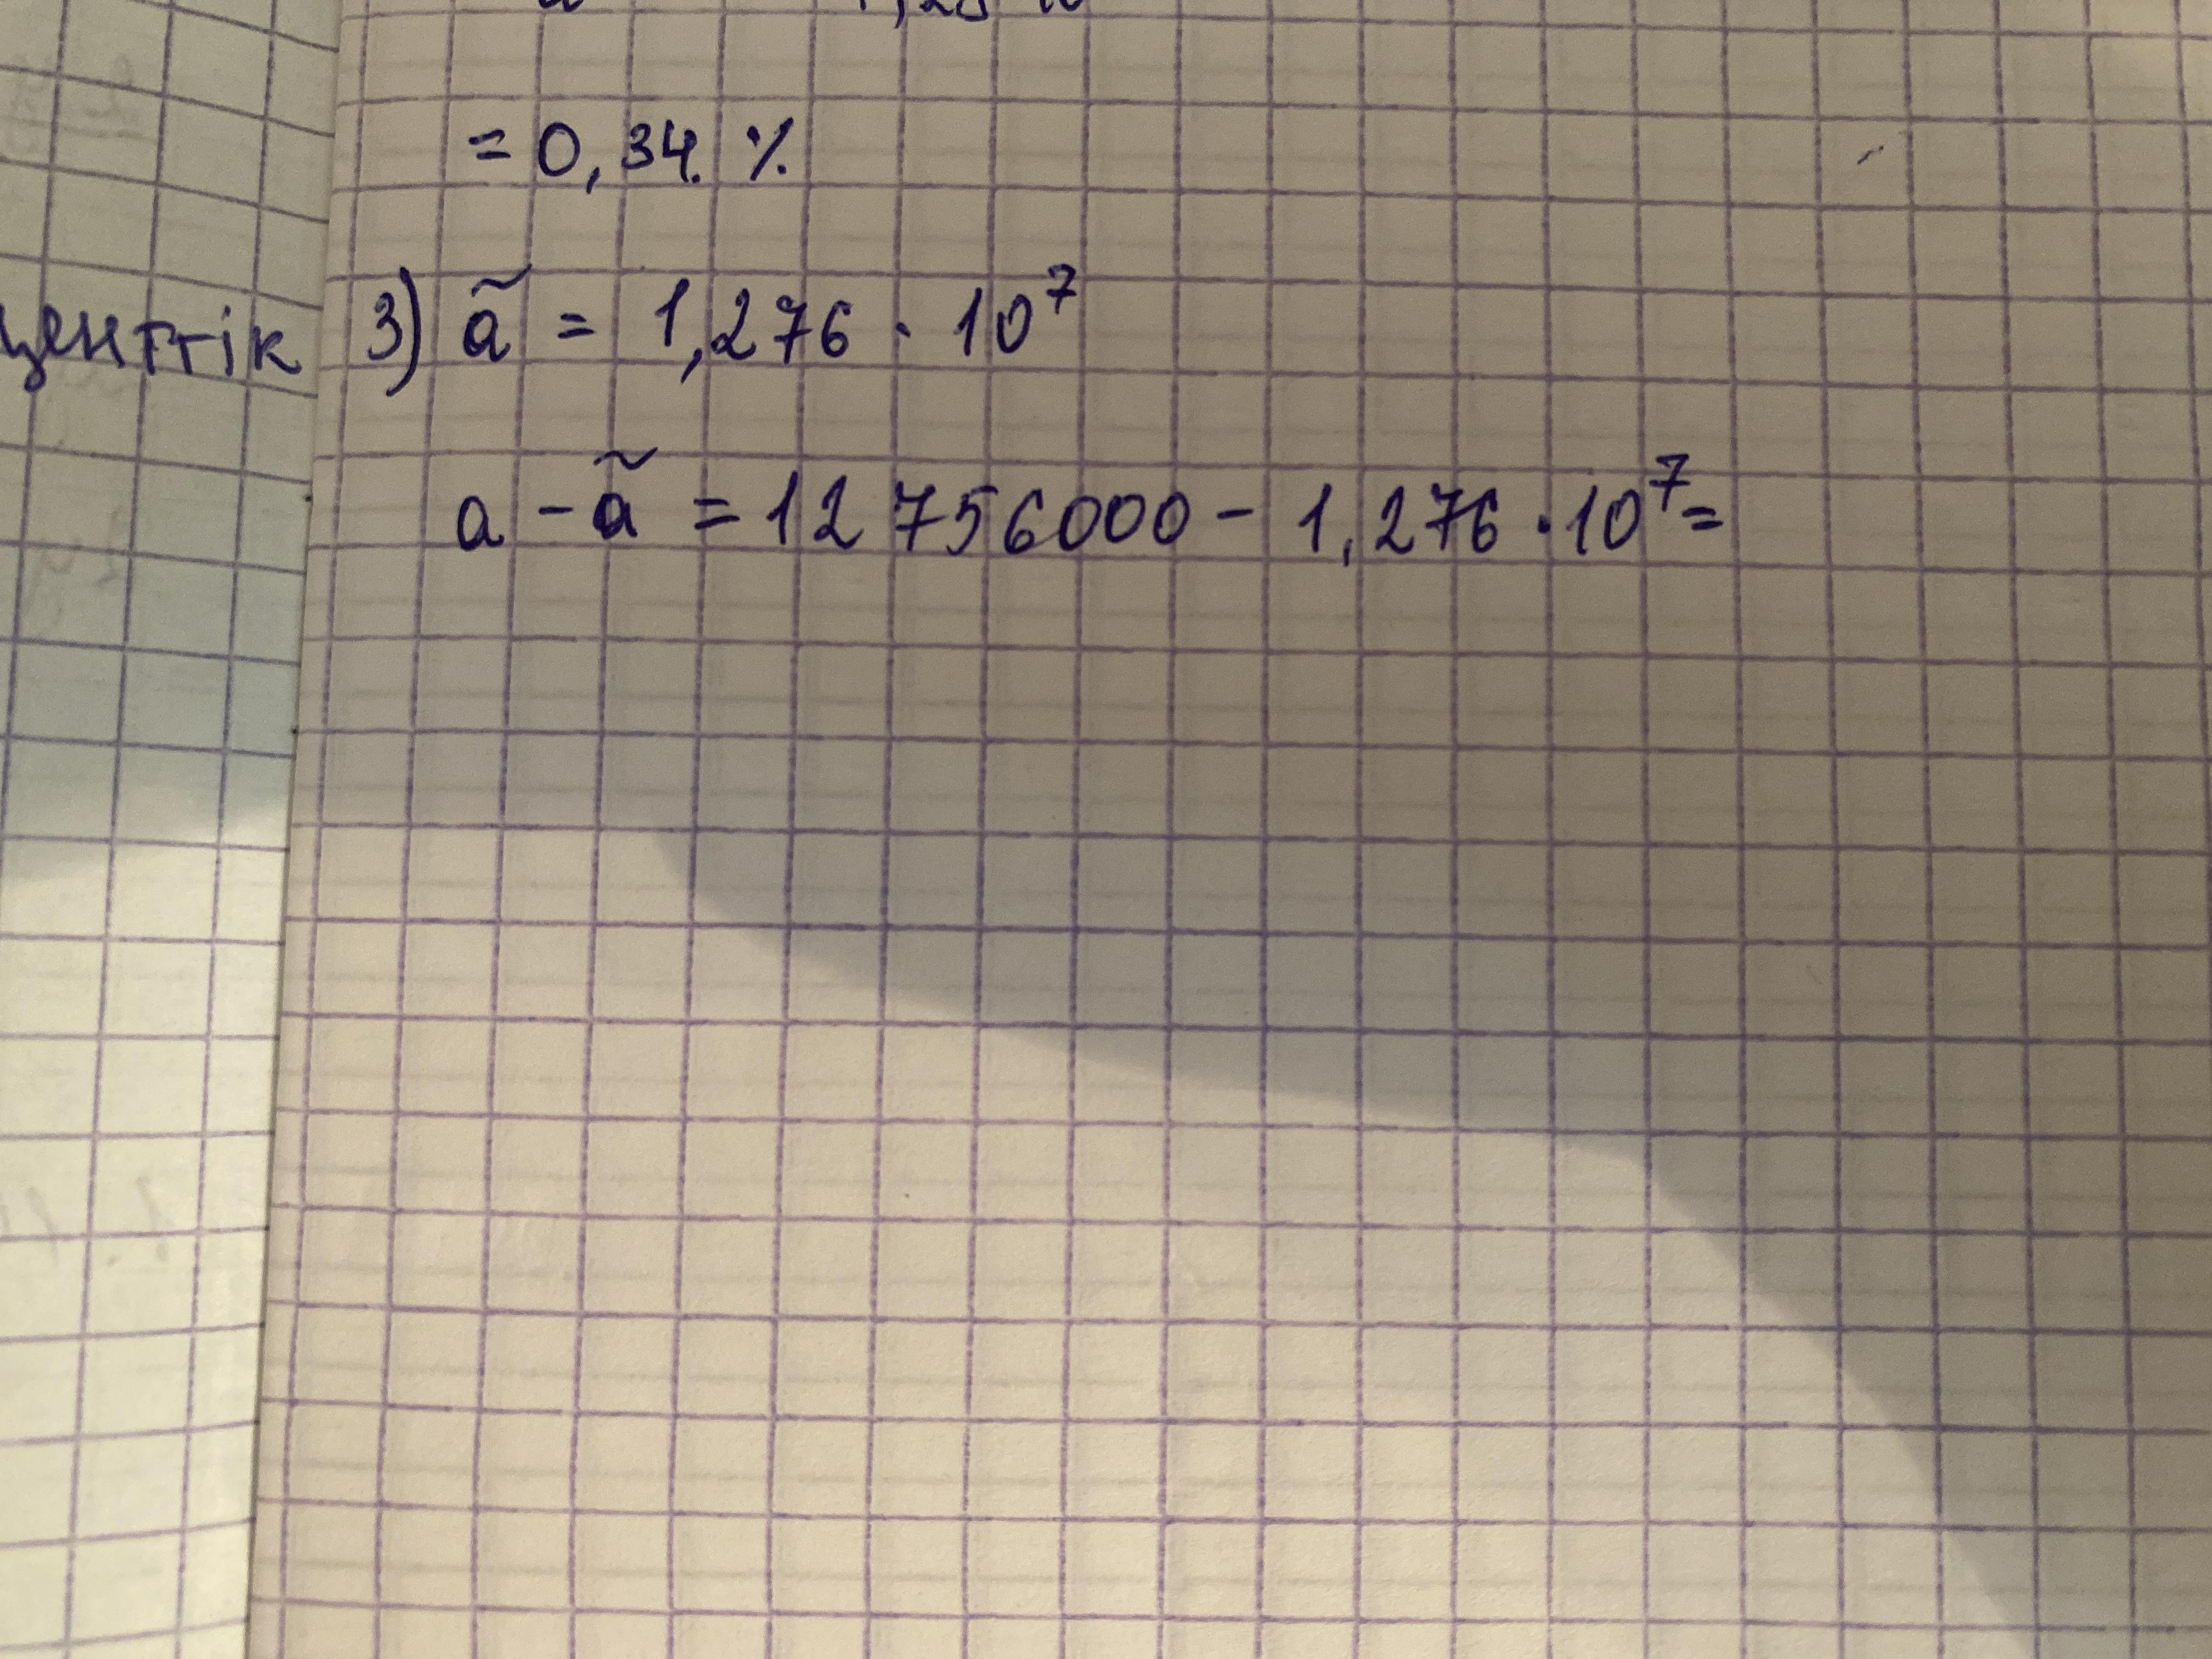 = 0,34. %
центтік
3) ã = 1,276 · 10⁷
a - ã = 12 756000 - 1,276 · 10⁷ =